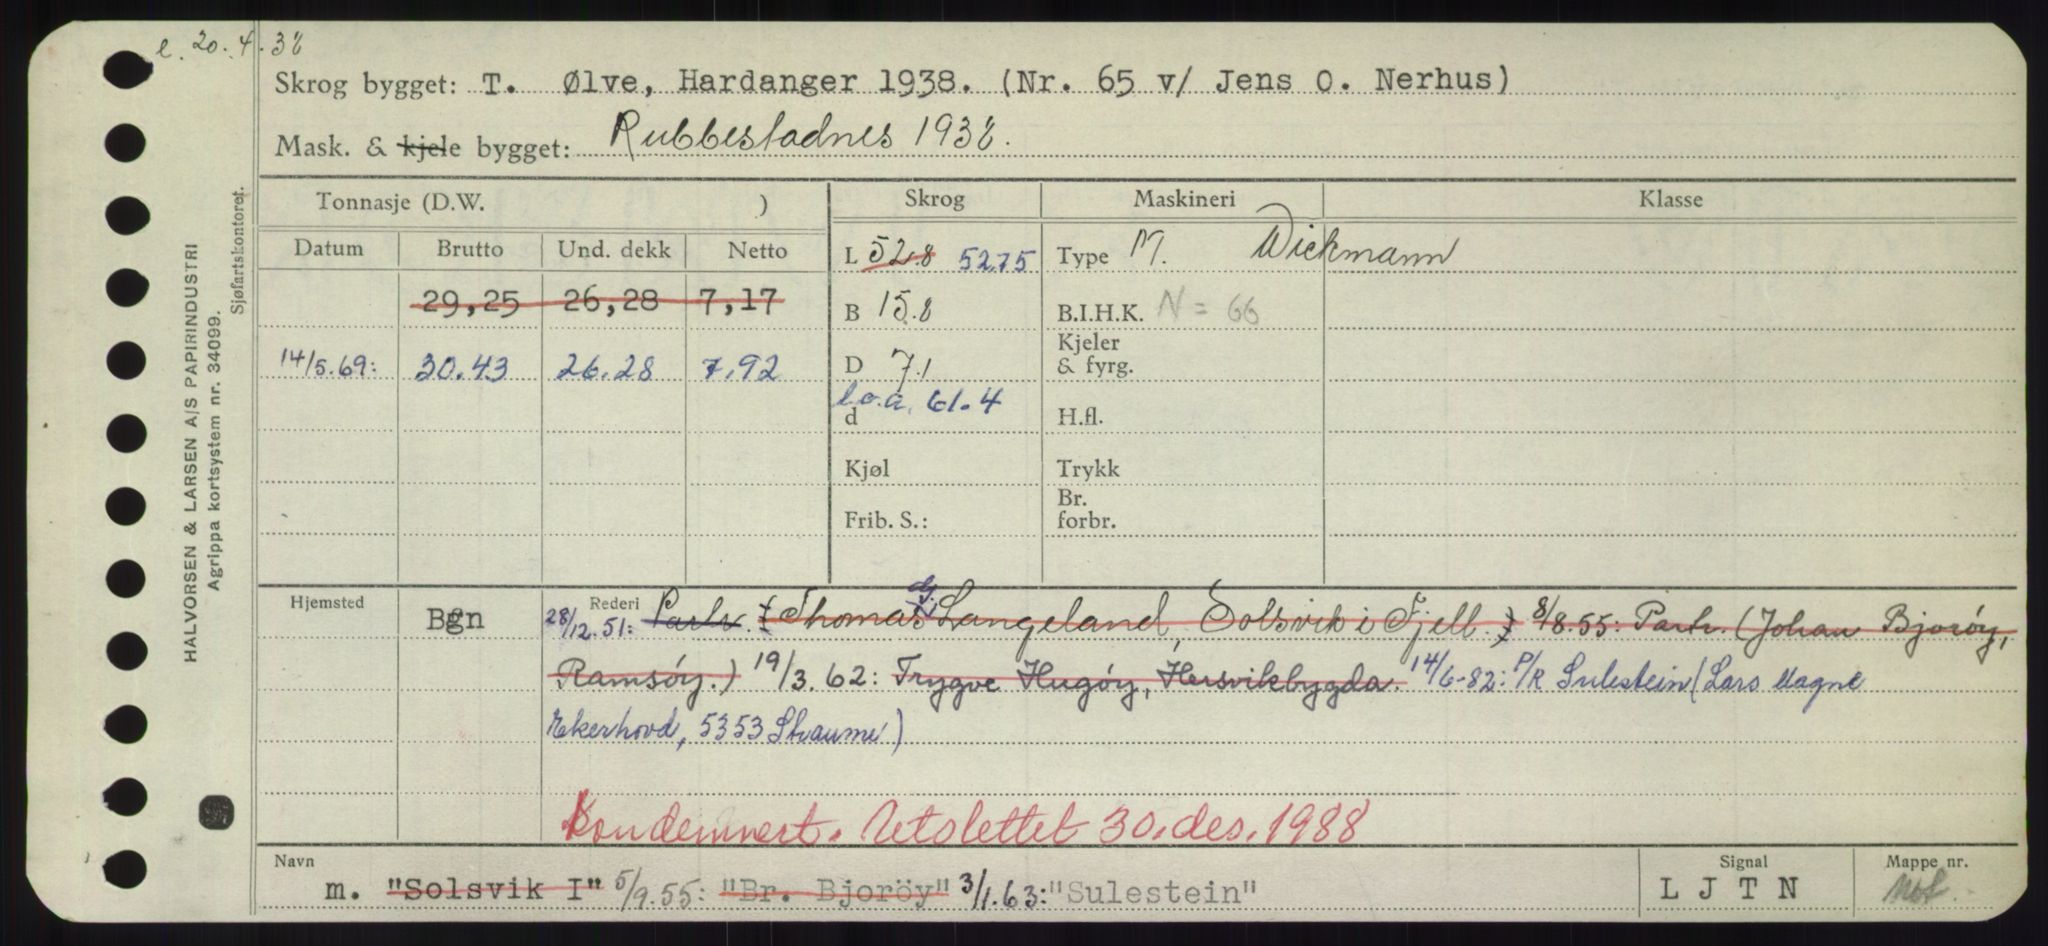 e. 20.4.38
Skrog bygget: T. Ølve, Hardanger 1938. (Nr. 65 v/ Jens O. Nerhus)
Mask. & kjele bygget: Rubbestadnes 1938.
HALVORSEN & LARSEN A/S PAPIRINDUSTRI
Agrippa kortsystem nr. 34099.
Sjøfartskontoret.
Tonnasje (D.W. ) Skrog Maskineri Klasse
Datum Brutto Und. dekk Netto
L 52.8 52.75 Type M. Wickmann
29,25 26,28 7,17 B 15.8 B.I.H.K. N = 66
14/5.69: 30.43 26.28 7.92 D 7.1 Kjeler & fyrg.
l.o.a. 61.4
d H.fl.
Kjøl Trykk
Frib. S.: Br. forbr.
Hjemsted Bgn Rederi 28/12.51: Partr. (Thomas Langeland, Solsvik i Fjell.) 8/8.55: Partr. (Johan Bjoröy,
Ramsöy.) 19/3.62: Trygve Hugöy, Hersvikbygda. 14/6-82: P/R Sulestein (Lars Magne
Ekerhovd, 5353 Straume)
Kondemnert. Utslettet 30. des. 1988
Navn Signal Mappe nr.
m. "Solsvik I" 5/9.55: "Br. Bjoröy" 3/1.63: "Sulestein" L J T N